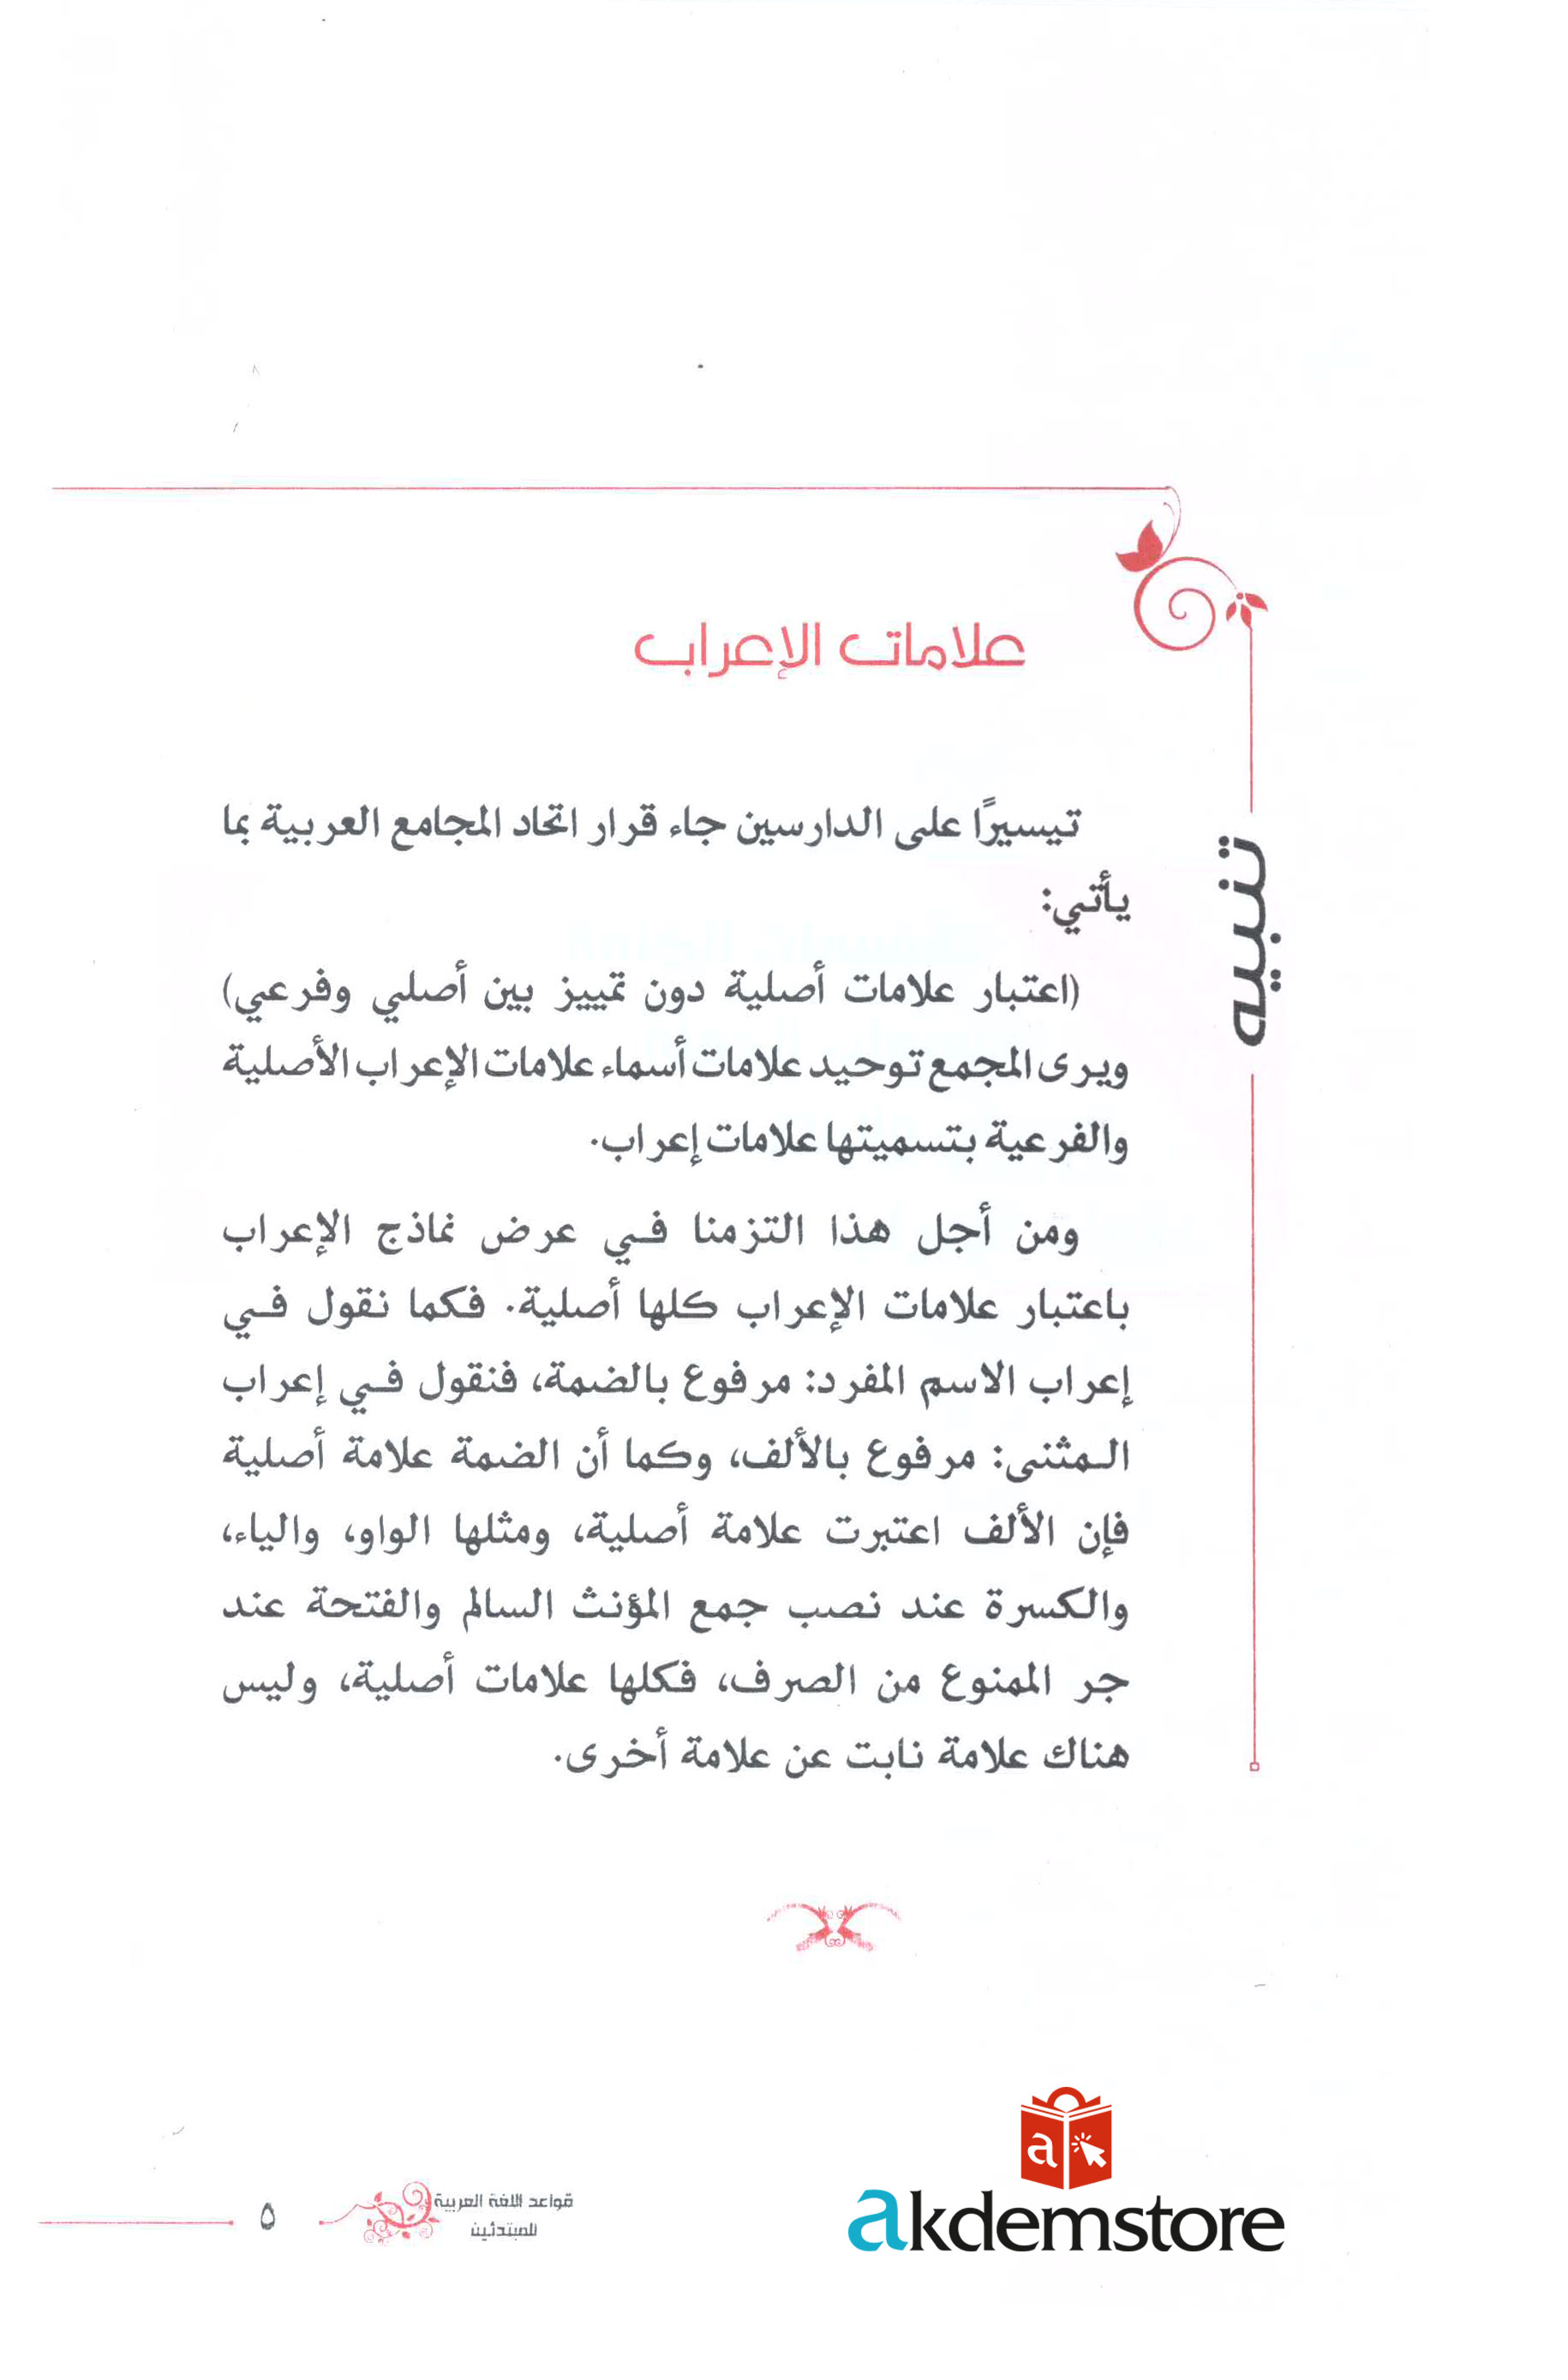 علامات الإعراب
تنبيه
تيسيرًا على الدارسين جاء قرار اتحاد المجامع العربية بما
يأتي:
(اعتبار علامات أصلية دون تمييز بين أصلي وفرعي)
ويرى المجمع توحيد علامات أسماء علامات الإعراب الأصلية
والفرعية بتسميتها علامات إعراب.
ومن أجل هذا التزمنا في عرض نماذج الإعراب
باعتبار علامات الإعراب كلها أصلية. فكما نقول في
إعراب الاسم المفرد: مرفوع بالضمة، فنقول في إعراب
المثنى: مرفوع بالألف، وكما أن الضمة علامة أصلية
فإن الألف اعتبرت علامة أصلية، ومثلها الواو، والياء،
والكسرة عند نصب جمع المؤنث السالم والفتحة عند
جر الممنوع من الصرف، فكلها علامات أصلية، وليس
هناك علامة نابت عن علامة أخرى.
akdemstore
قواعد اللغة العربية
للمبتدئين
٥